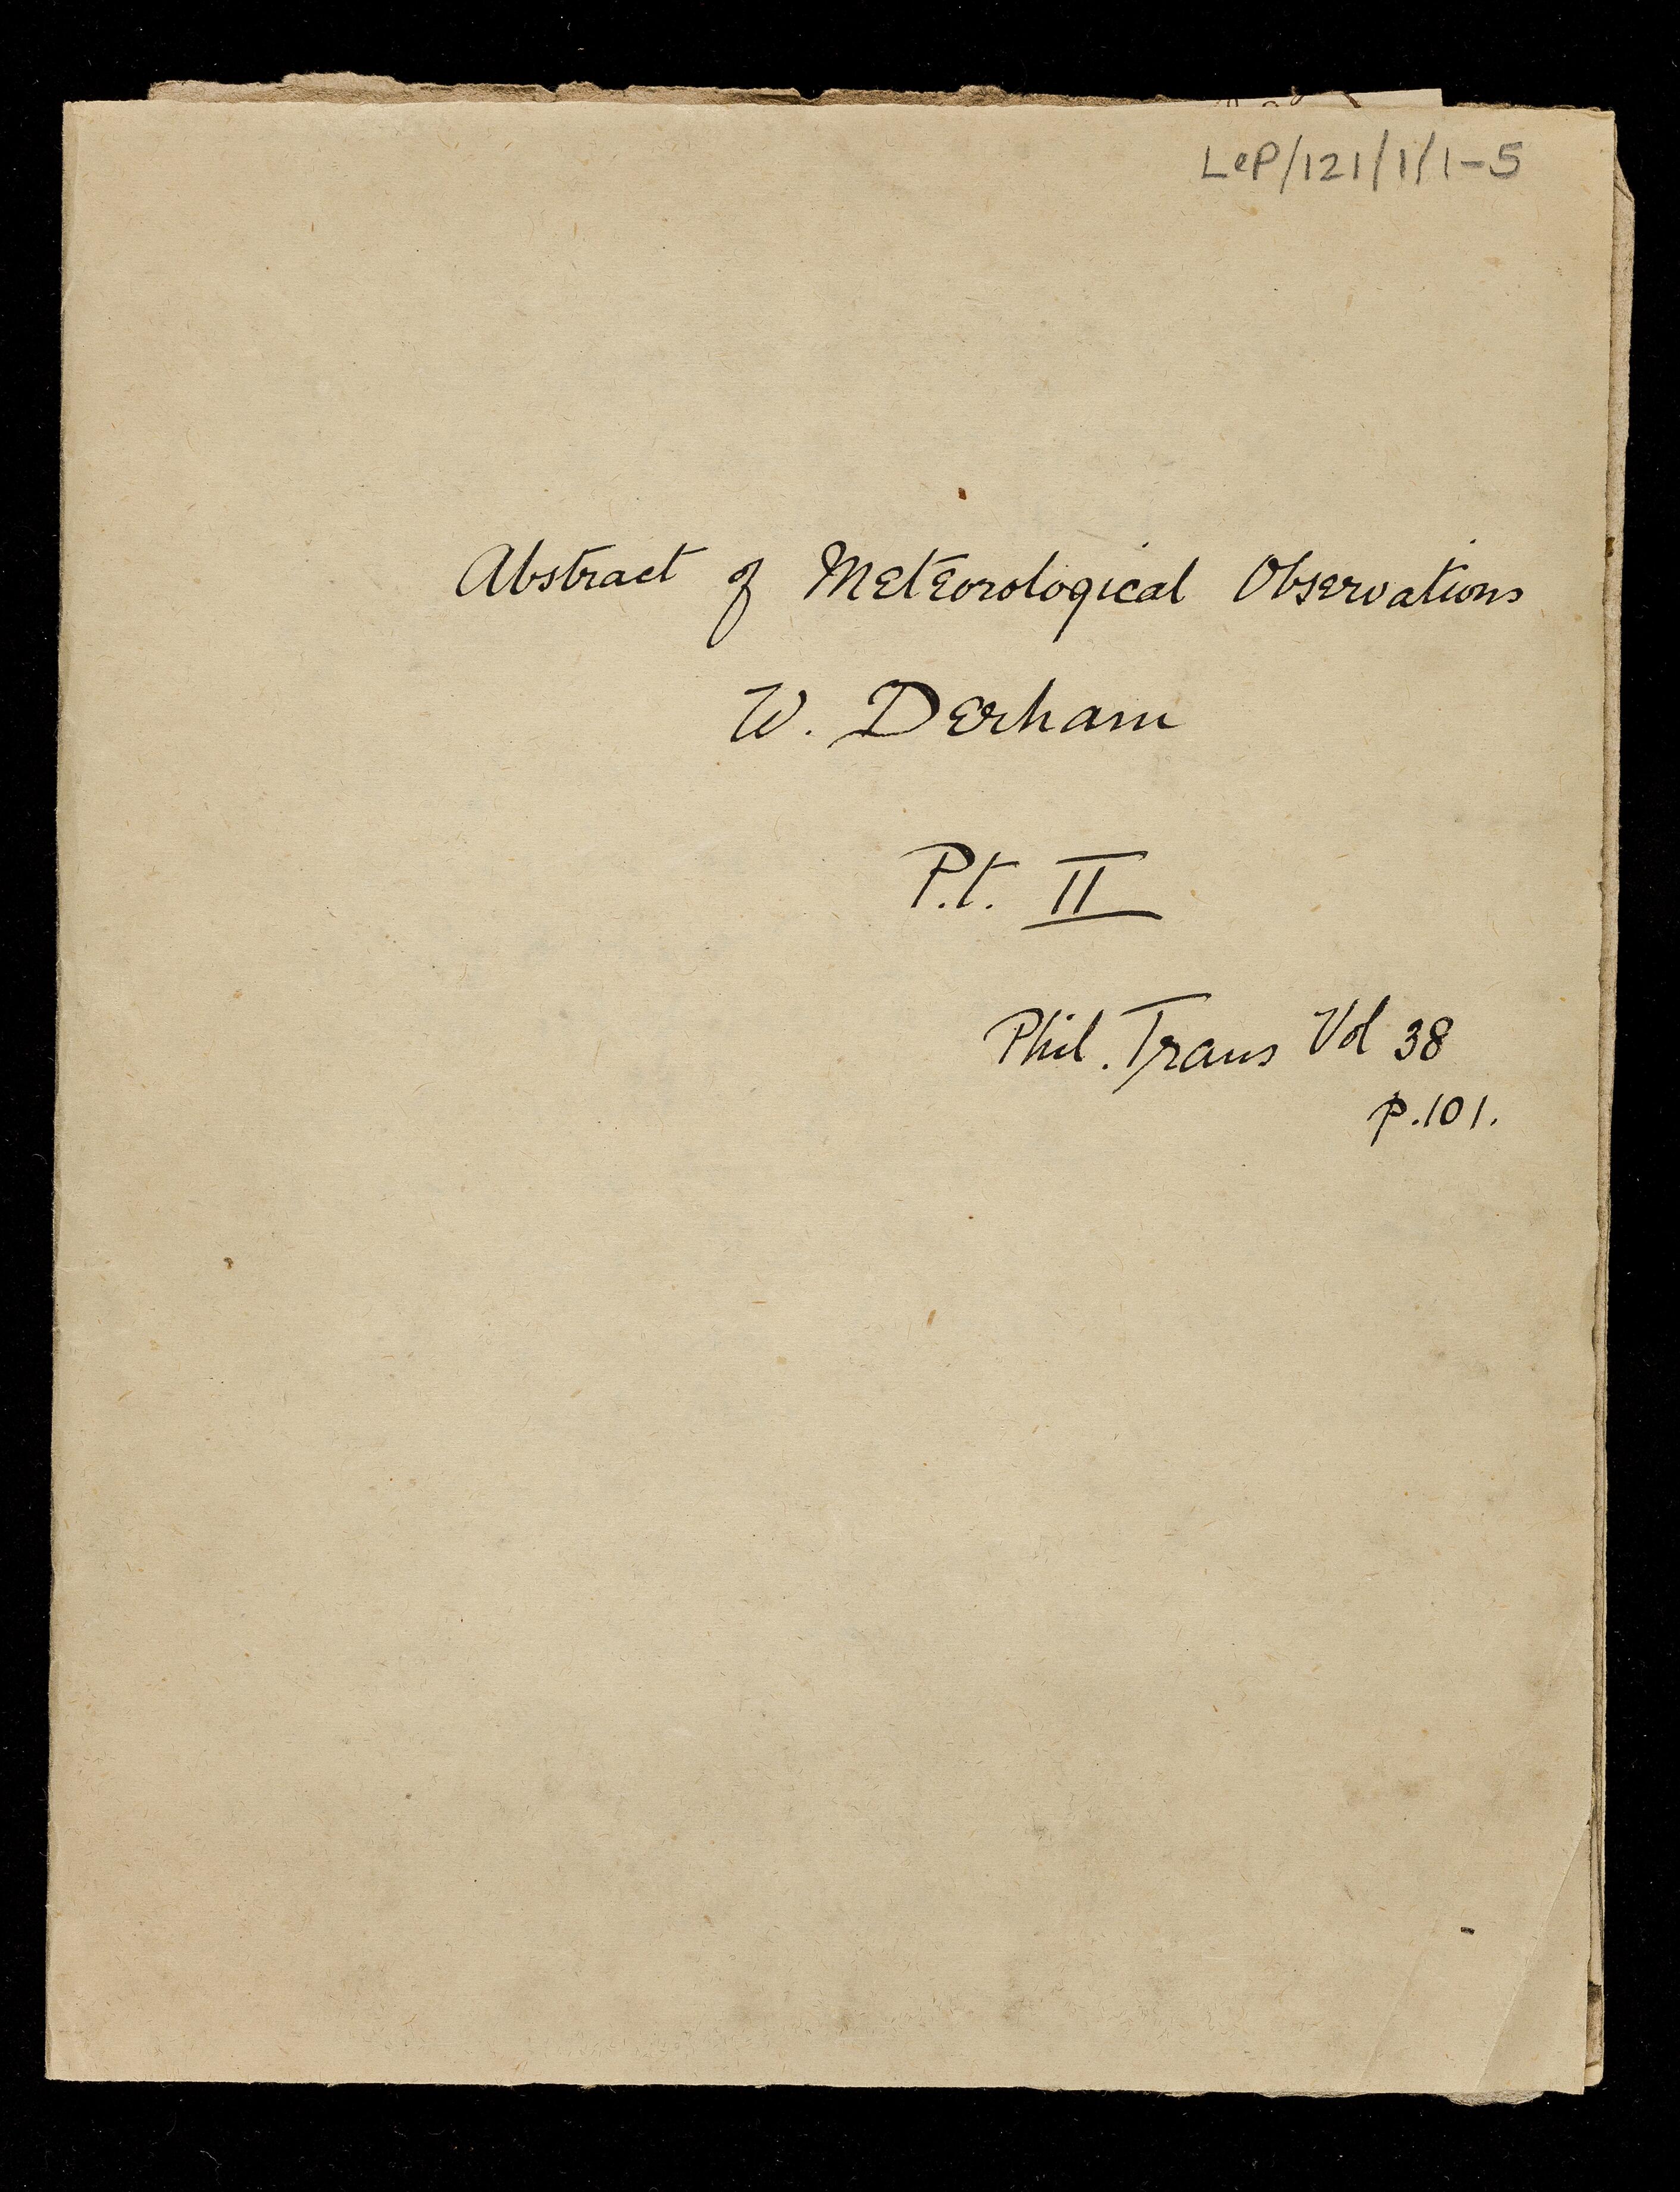 LeP/121/1/1-5
Abstract of Meteorological Observations
W. Derham
P.t. II
Phil. Trans Vol 38
p.101.